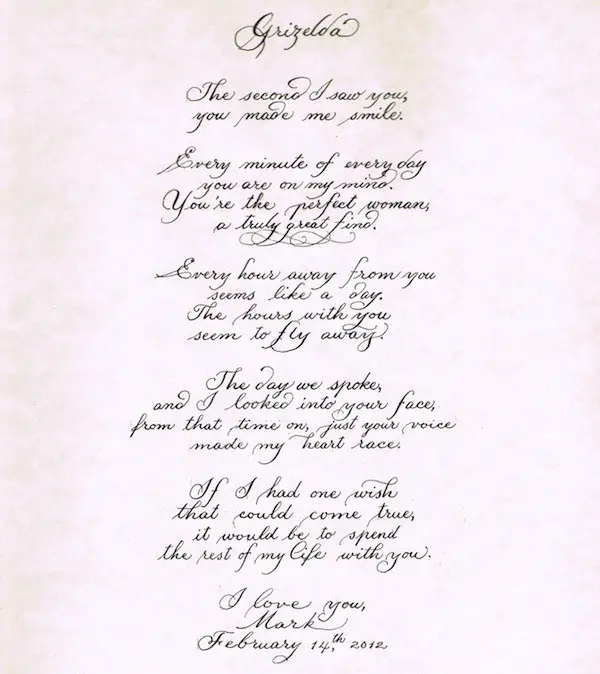 Grizelda
The second I saw you,
you made me smile.
Every minute of every day
you are on my mind.
You're the perfect woman,
a truly great find.
Every hour away from you
seems like a day.
The hours with you
seem to fly away.
The day we spoke,
and I looked into your face,
from that time on, just your voice
made my heart race.
If I had one wish
that could come true,
it would be to spend
the rest of my life with you.
I love you,
Mark
February 14,th 2012